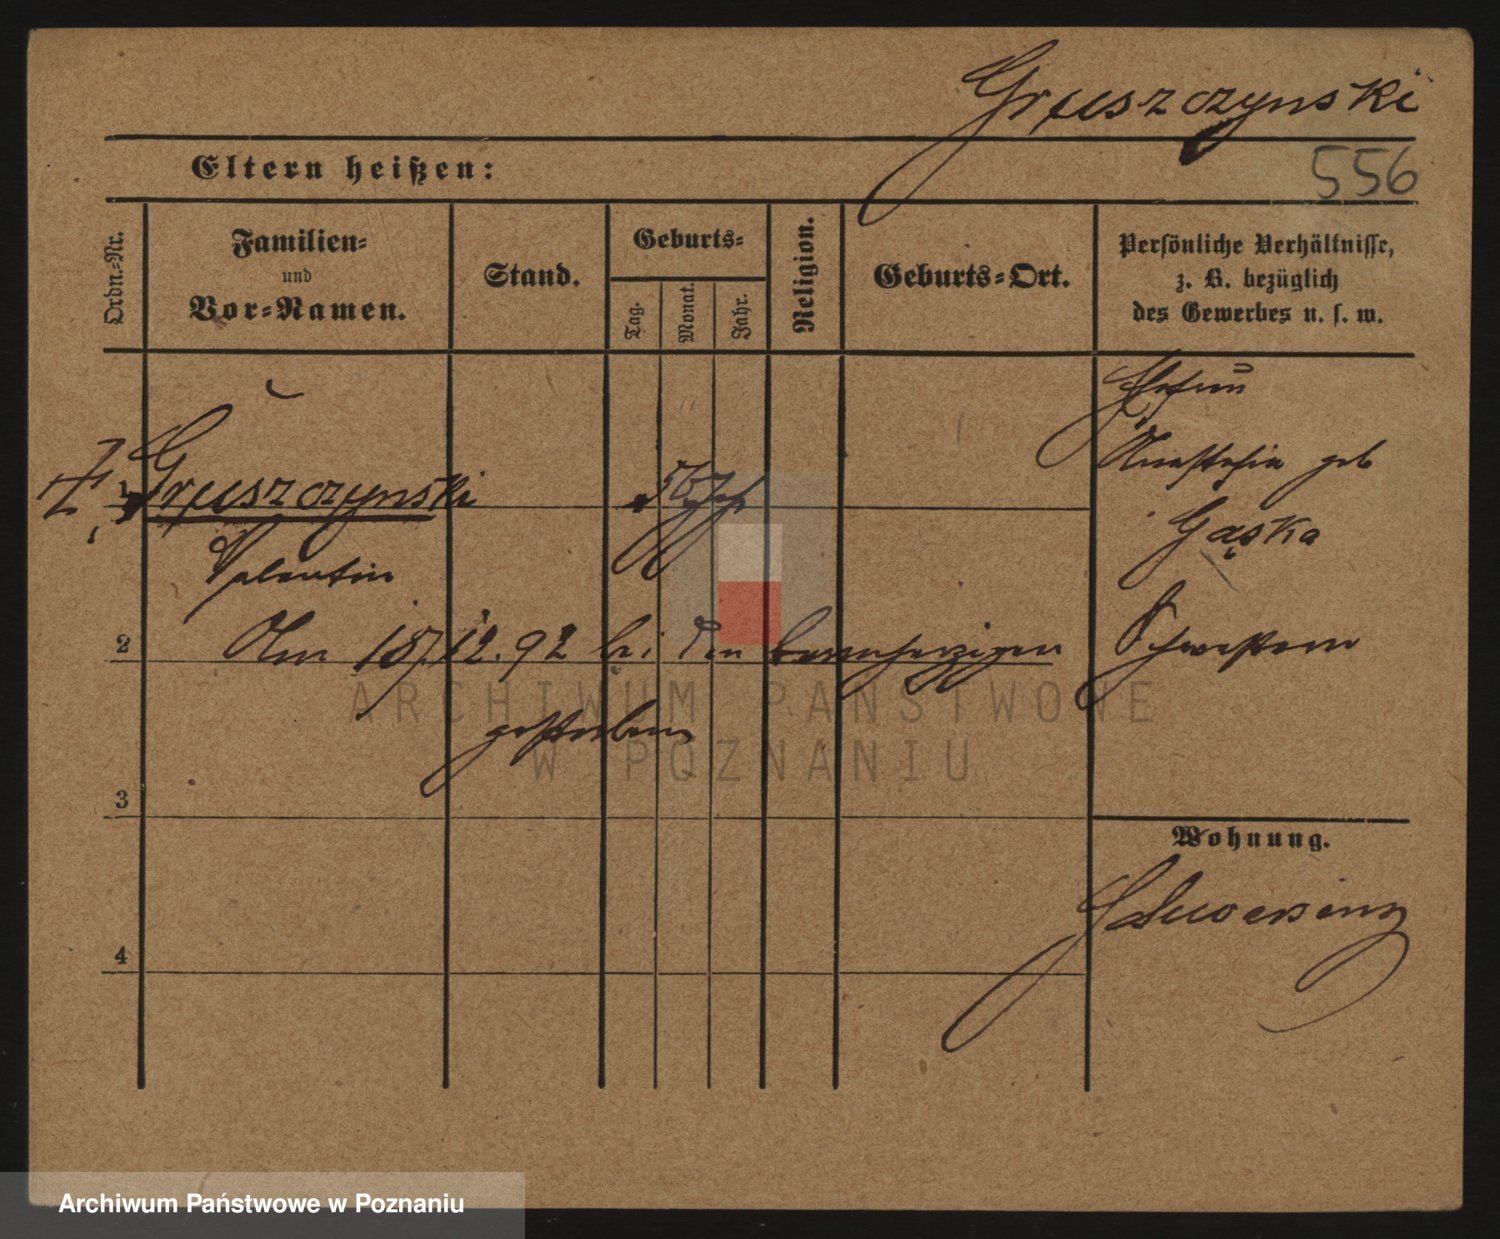 Gruszczynski
Eltern heißen:
556
Ordn.-Nr.
Familien-
und
Vor-Namen.
Stand.
Geburts-
Tag.
Monat.
Jahr.
Religion.
Geburts-Ort.
Persönliche Verhältnisse,
z. B. bezüglich
des Gewerbes u. s. w.
Ehefrau
Anastasia geb
Gąska
1
Gruszczynski
56
Valentin
2
Am 15/12.92 bei den barmherzigen Schwestern
gestorben
ARCHIWUM PAŃSTWOWE
W POZNANIU
3
Wohnung.
Schwersenz
4
Archiwum Państwowe w Poznaniu